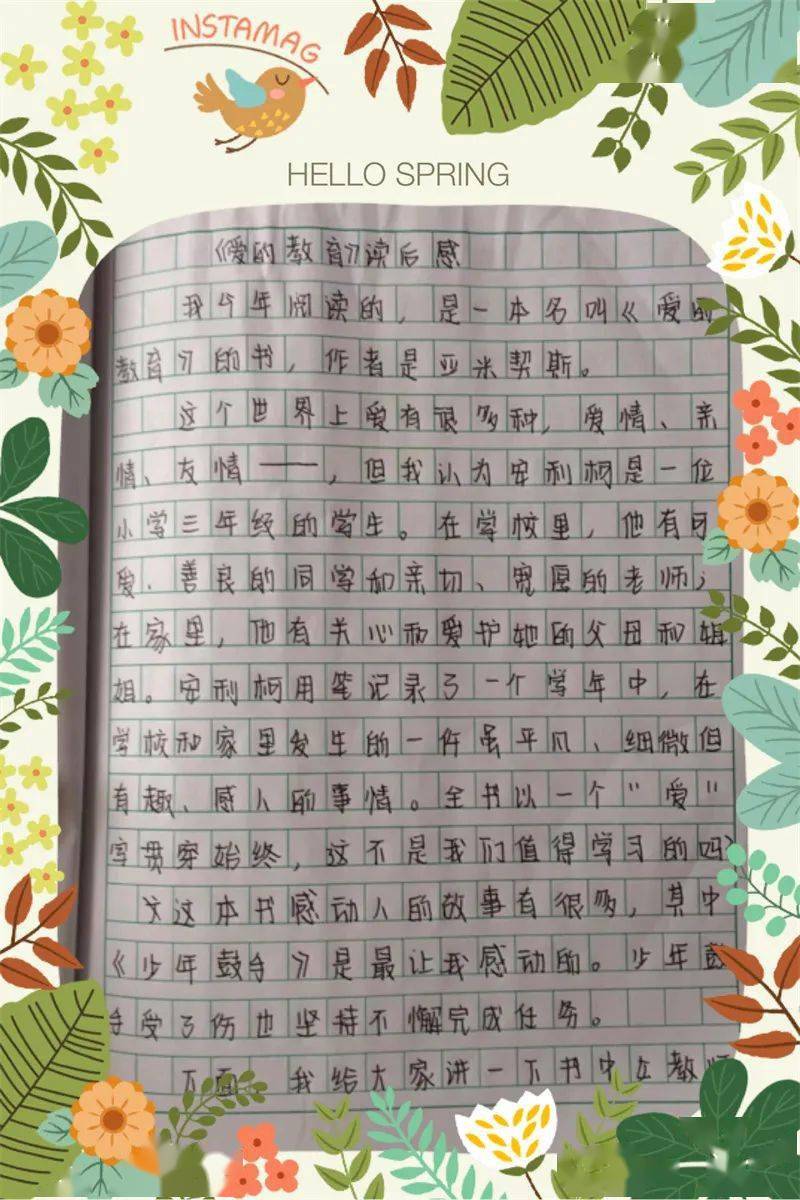 INSTAMAG
HELLO SPRING
《爱的教育》读后感
我今年阅读的，是一本名叫《爱的
教育》的书，作者是亚米契斯。
这个世界上爱有很多种，爱情、亲
情、友情——，但我认为安利柯是一位
小学三年级的学生。在学校里，他有可
爱、善良的同学和亲切、宽愿的老师；
在家里，他有关心和爱护她的父母和姐
姐。安利柯用笔记录了一个学年中，在
学校和家里发生的一件虽平凡、细微但
有趣、感人的事情。全书以一个“爱”
字贯穿始终，这不是我们值得学习的吗？
这本书感动人的故事有很多，其中
《少年鼓手》是最让我感动的。少年鼓
手受了伤也坚持不懈完成任务。
下面，我给大家讲一下书中在教师